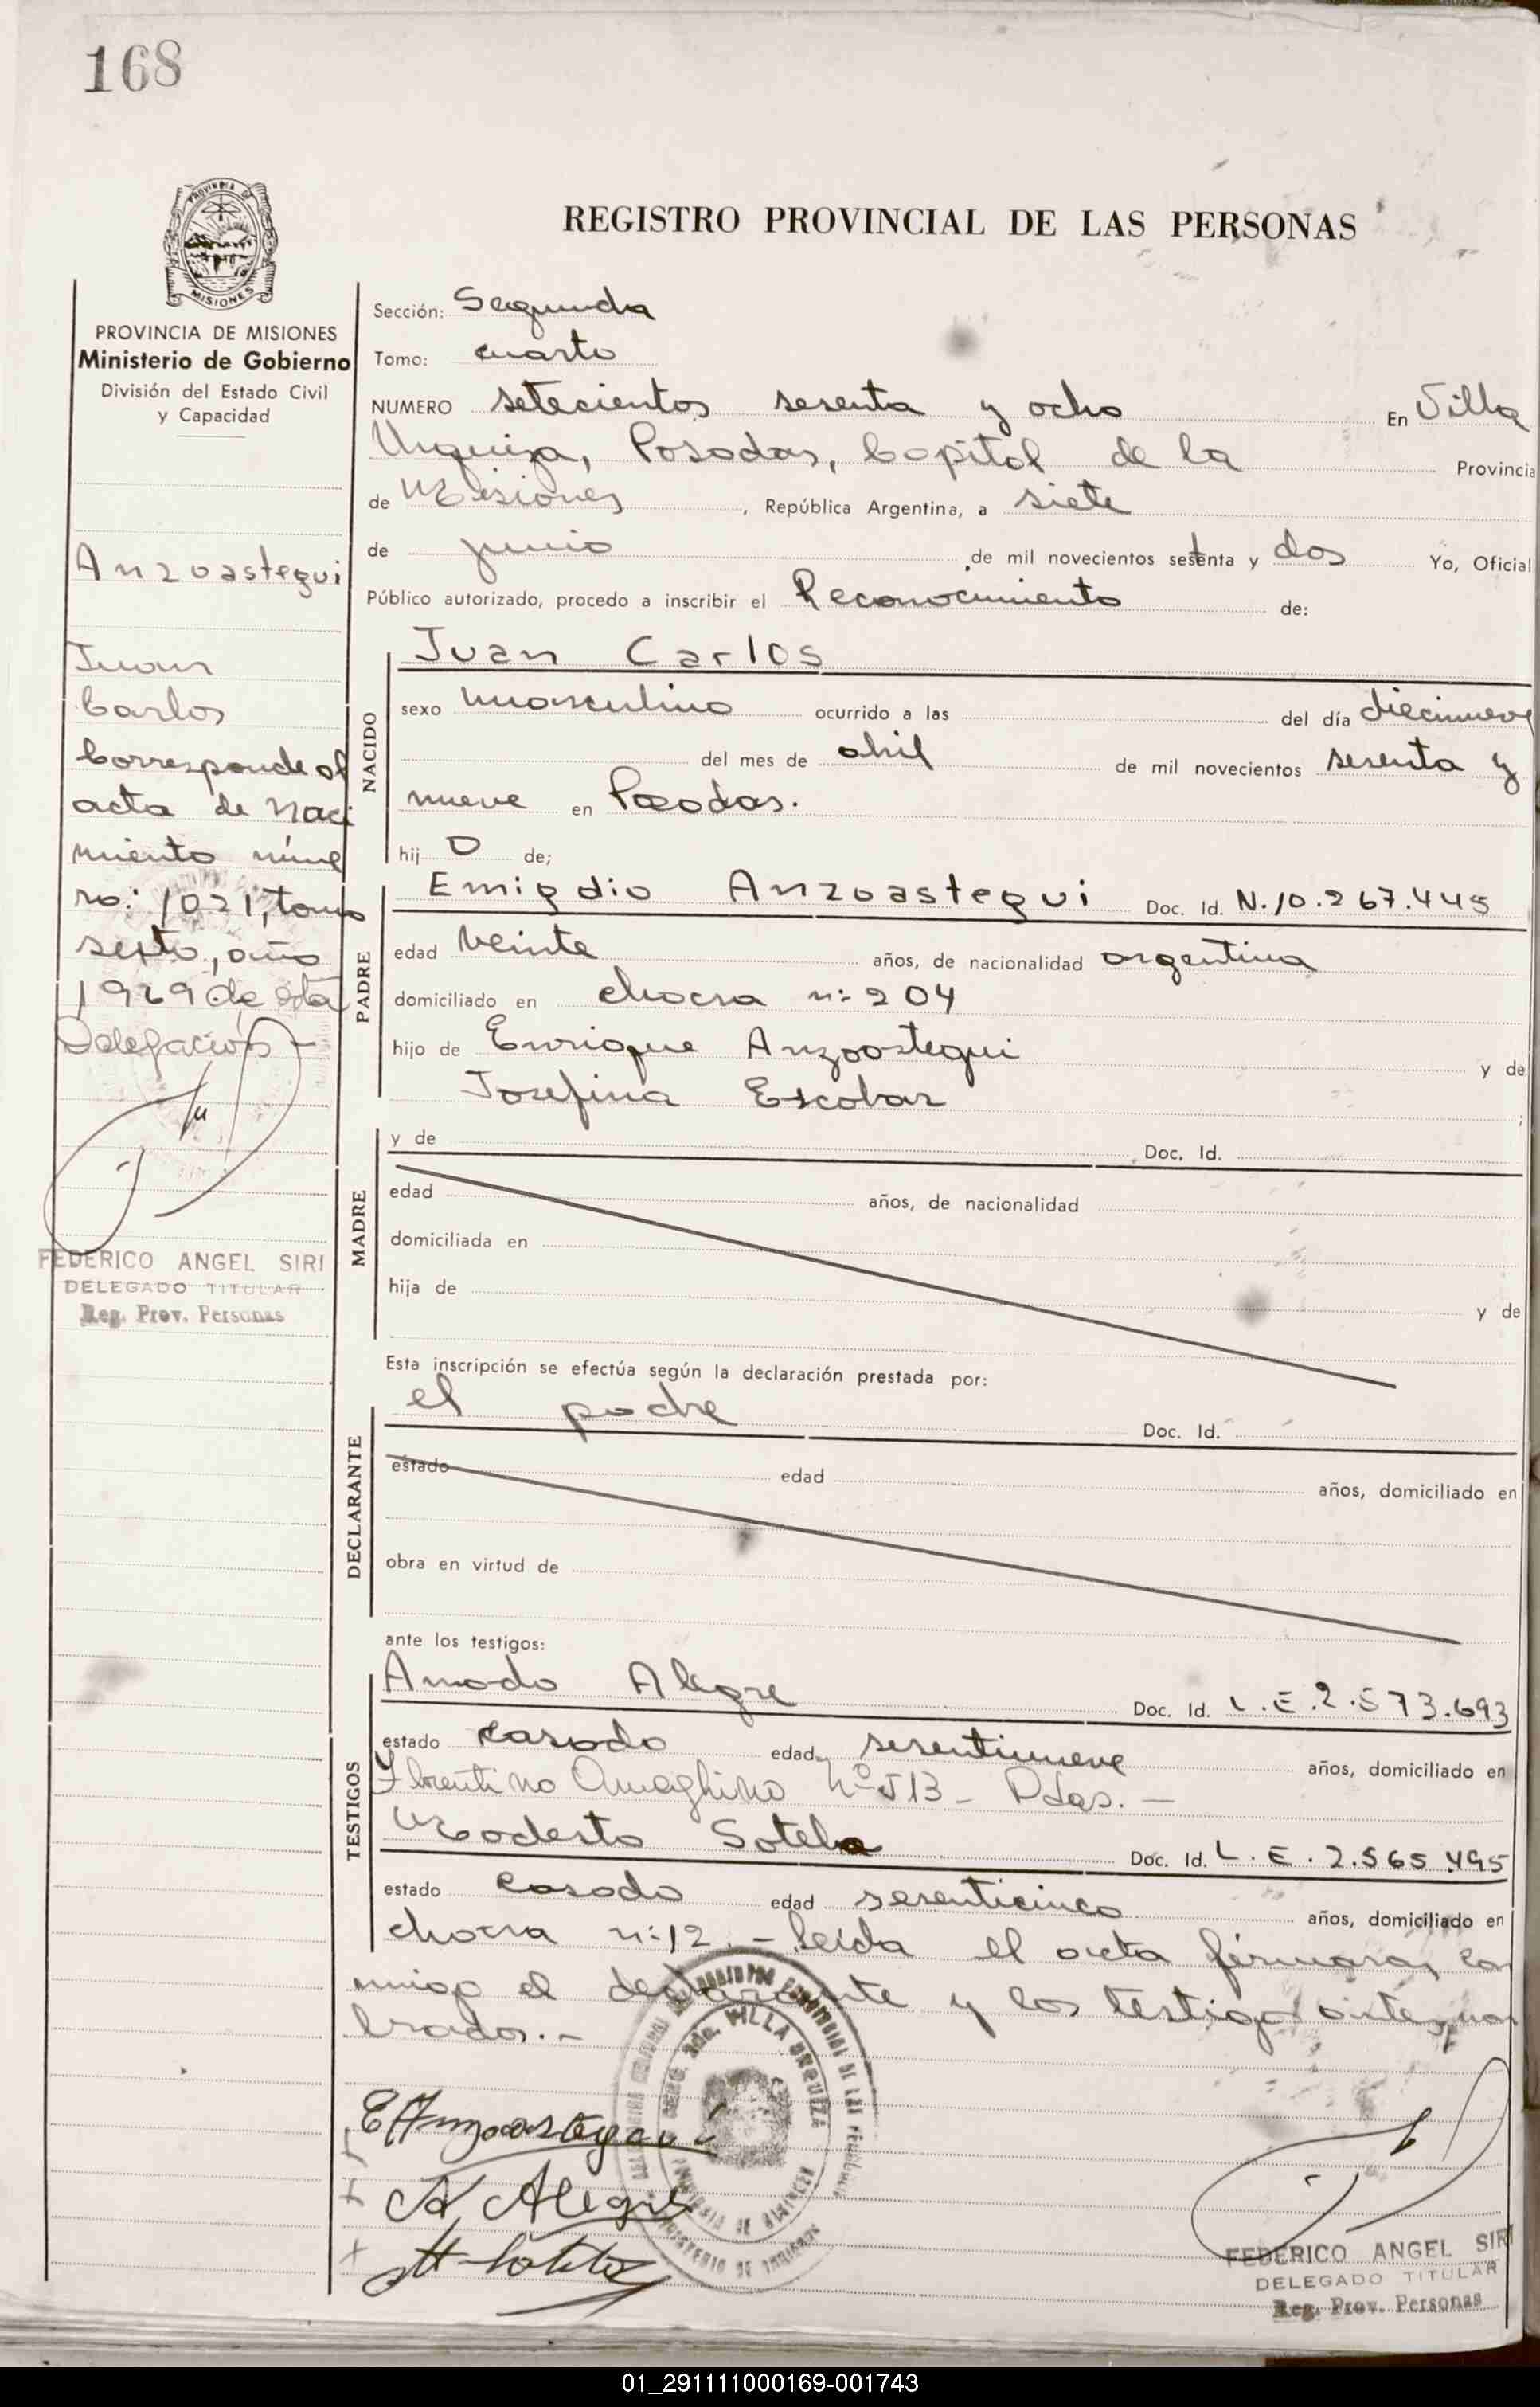 168
PROVINCIA DE
MISIONES
REGISTRO PROVINCIAL DE LAS PERSONAS
PROVINCIA DE MISIONES
Ministerio de Gobierno
División del Estado Civil
y Capacidad
Anzoastegui
Juan
Carlos
Corresponde al
acta de naci
miento núme
ro: 1021, tomo
sexto, año
1969 de esta
Delegación -
FEDERICO ANGEL SIRI
DELEGADO TITULAR
Reg. Prov. Personas
Sección: Segunda
Tomo: cuarto
NUMERO setecientos sesenta y ocho En Villa
Urquiza, Posadas, Capital de la Provincia
de Misiones, República Argentina, a siete
de junio de mil novecientos setenta y dos Yo, Oficial
Público autorizado, procedo a inscribir el Reconocimiento de:
NACIDO
Juan Carlos
sexo masculino ocurrido a las del día diecinueve
del mes de abril de mil novecientos sesenta y
nueve en Posadas.
hij o de;
PADRE
Emigdio Anzoastegui Doc. Id. N.10.267.445
edad veinte años, de nacionalidad argentina
domiciliado en chacra n: 204
hijo de Enrique Anzoastegui y de
Josefina Escobar
MADRE
y de Doc. Id.
edad años, de nacionalidad
domiciliada en
hija de y de
Esta inscripción se efectúa según la declaración prestada por:
DECLARANTE
el padre Doc. Id.
estado edad años, domiciliado en
obra en virtud de
ante los testigos:
TESTIGOS
Amado Alegre Doc. Id. L.E.2.573.693
estado casado edad sesentinueve años, domiciliado en
Florentino Ameghino nº 513 - Pdas. -
Modesto Sotelo Doc. Id. L.E. 2.565.495
estado casado edad sesenticinco años, domiciliado en
chacra n:12. - Leída el acta firmaran con
migo el declarante y los testigos antenom
brados. -
E Anzoastegui
A. Alegre
M Sotelo
DELEG. 2da. VILLA URQUIZA
FEDERICO ANGEL SIRI
DELEGADO TITULAR
Reg. Prov. Personas
01_291111000169-001743